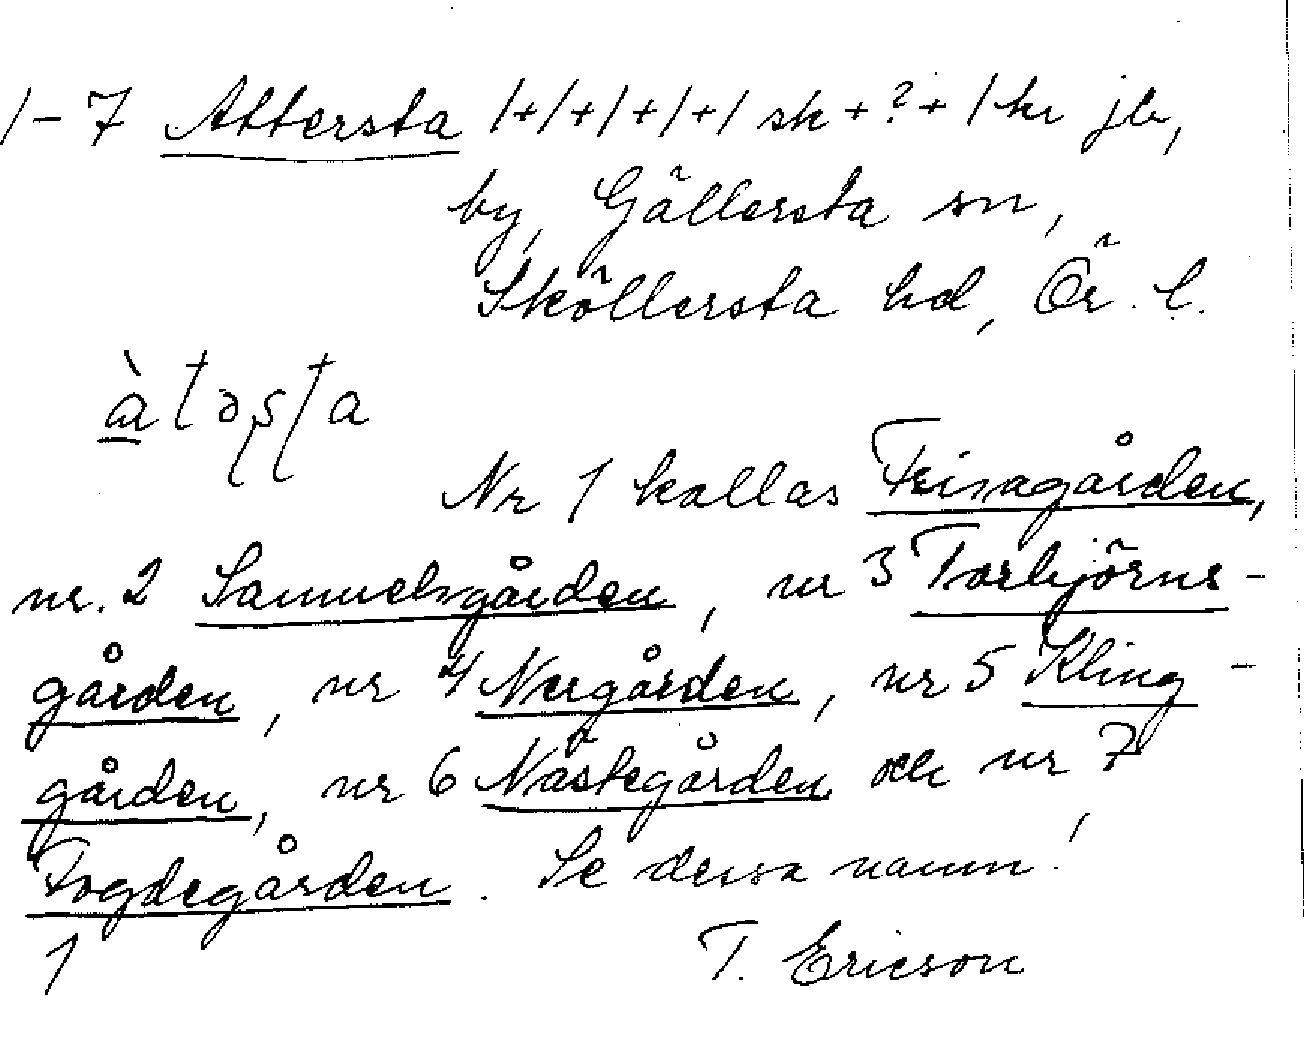 1-7 Attersta 1+1+1+1+1 sk + ? + 1 kr jb,
by, Gällersta sn,
Sköllersta hd, Ör. l.
àtəʂʈa
Nr 1 kallas Frisagården,
nr. 2 Samuelsgården, nr 3 Torbjörns-
gården, nr 4 Norgården, nr 5 Kling-
gården, nr 6 Nästegården och nr 7
Fogdegården. Se dessa namn!
1 T. Ericson